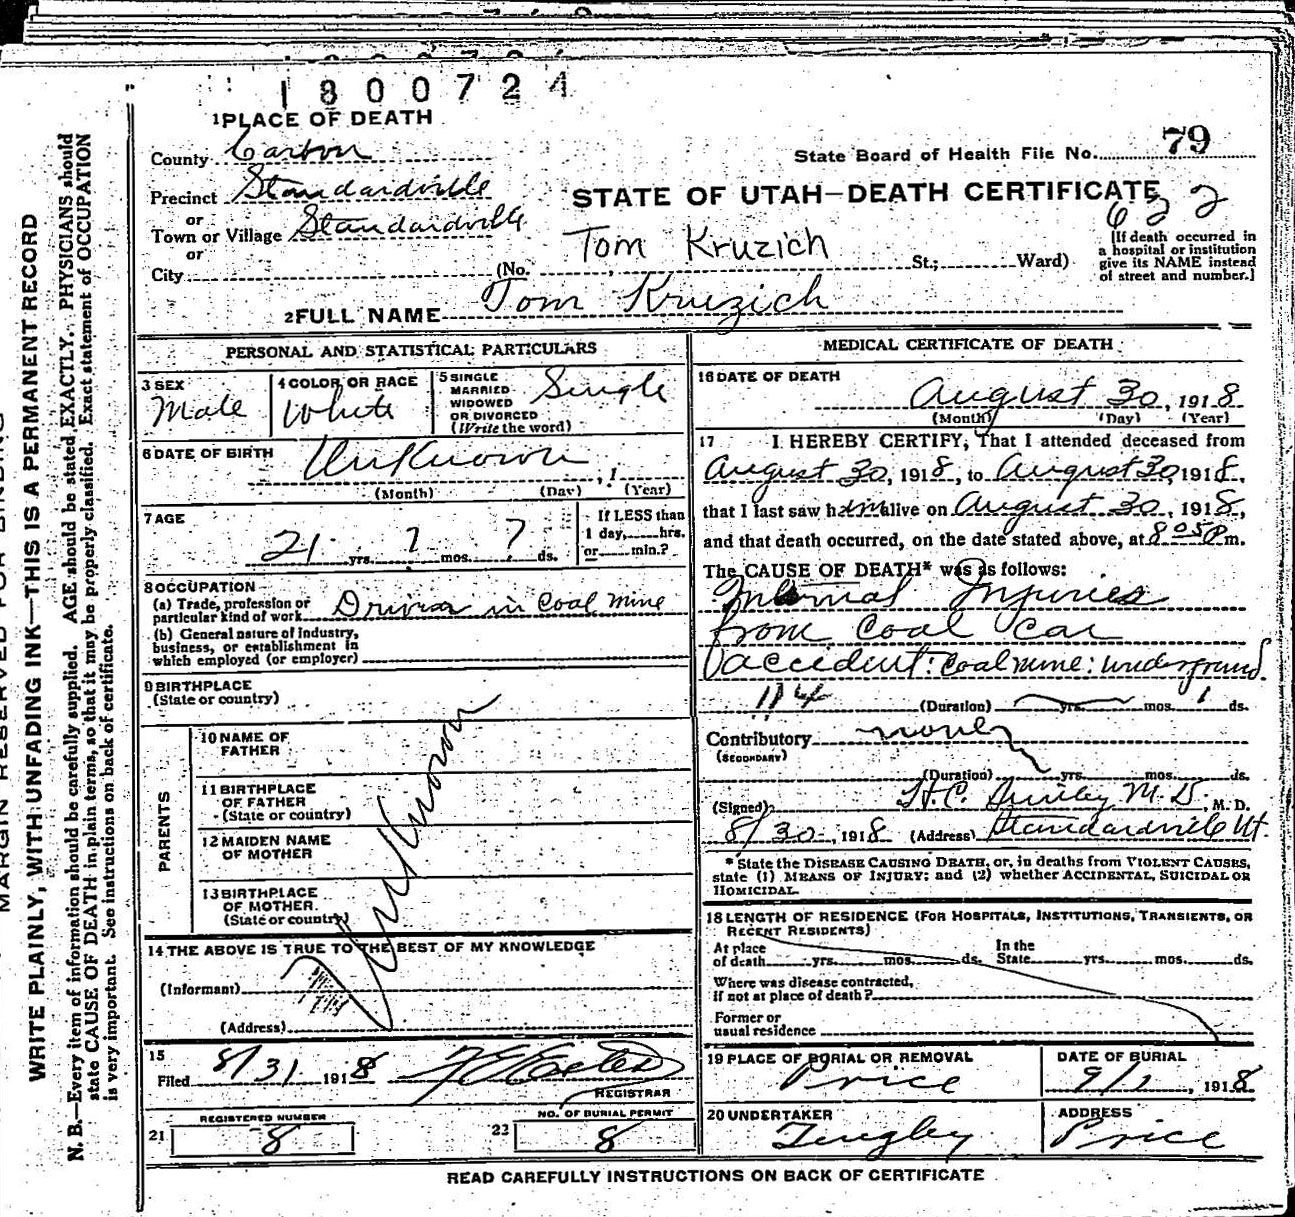 1800724
1 PLACE OF DEATH
County Carbon
State Board of Health File No. 79
Precinct Standardville
STATE OF UTAH—DEATH CERTIFICATE
622
or
Town or Village Standardville
Tom Kruzich
or
City (No. St.; Ward)
[If death occurred in
a hospital or institution
give its NAME instead
of street and number.]
2 FULL NAME Tom Kruzich
PERSONAL AND STATISTICAL PARTICULARS
3 SEX
Male
4 COLOR OR RACE
White
5 SINGLE
MARRIED
WIDOWED
OR DIVORCED
(Write the word)
Single
6 DATE OF BIRTH Unknown , 1
(Month) (Day) (Year)
7 AGE
21 yrs. ? mos. ? ds.
If LESS than
1 day, hrs.
or min.?
8 OCCUPATION
(a) Trade, profession or
particular kind of work Driver in Coal Mine
(b) General nature of industry,
business, or establishment in
which employed (or employer)
9 BIRTHPLACE
(State or country)
PARENTS
10 NAME OF
FATHER
11 BIRTHPLACE
OF FATHER
(State or country)
12 MAIDEN NAME
OF MOTHER
13 BIRTHPLACE
OF MOTHER
(State or country)
Unknown
14 THE ABOVE IS TRUE TO THE BEST OF MY KNOWLEDGE
(Informant)
(Address)
15
Filed 8/31 1918
REGISTRAR
21 REGISTERED NUMBER
8
22 NO. OF BURIAL PERMIT
8
MEDICAL CERTIFICATE OF DEATH
16 DATE OF DEATH
August 30, 1918
(Month) (Day) (Year)
17 I HEREBY CERTIFY, That I attended deceased from
August 30, 1918, to August 30, 1918,
that I last saw him alive on August 30, 1918,
and that death occurred, on the date stated above, at 8:05 P m.
The CAUSE OF DEATH* was as follows:
Internal Injuries
from Coal Car
accident: Coal mine: underground
114 (Duration) yrs. mos. 1 ds.
Contributory none
(SECONDARY)
(Duration) yrs. mos. ds.
(Signed) H.C. M.D. M. D.
8/30, 1918 (Address) Standardville Ut.
* State the DISEASE CAUSING DEATH, or, in deaths from VIOLENT CAUSES,
state (1) MEANS OF INJURY; and (2) whether ACCIDENTAL, SUICIDAL OR
HOMICIDAL.
18 LENGTH OF RESIDENCE (FOR HOSPITALS, INSTITUTIONS, TRANSIENTS, OR
RECENT RESIDENTS)
At place
of death yrs. mos. ds.
In the
State yrs. mos. ds.
Where was disease contracted,
If not at place of death?
Former or
usual residence
19 PLACE OF BURIAL OR REMOVAL
Price
DATE OF BURIAL
9/1, 1918
20 UNDERTAKER
Tingley
ADDRESS
Price
READ CAREFULLY INSTRUCTIONS ON BACK OF CERTIFICATE
WRITE PLAINLY, WITH UNFADING INK—THIS IS A PERMANENT RECORD
N. B.—Every item of information should be carefully supplied. AGE should be stated EXACTLY. PHYSICIANS should
state CAUSE OF DEATH in plain terms, so that it may be properly classified. Exact statement of OCCUPATION
is very important. See instructions on back of certificate.